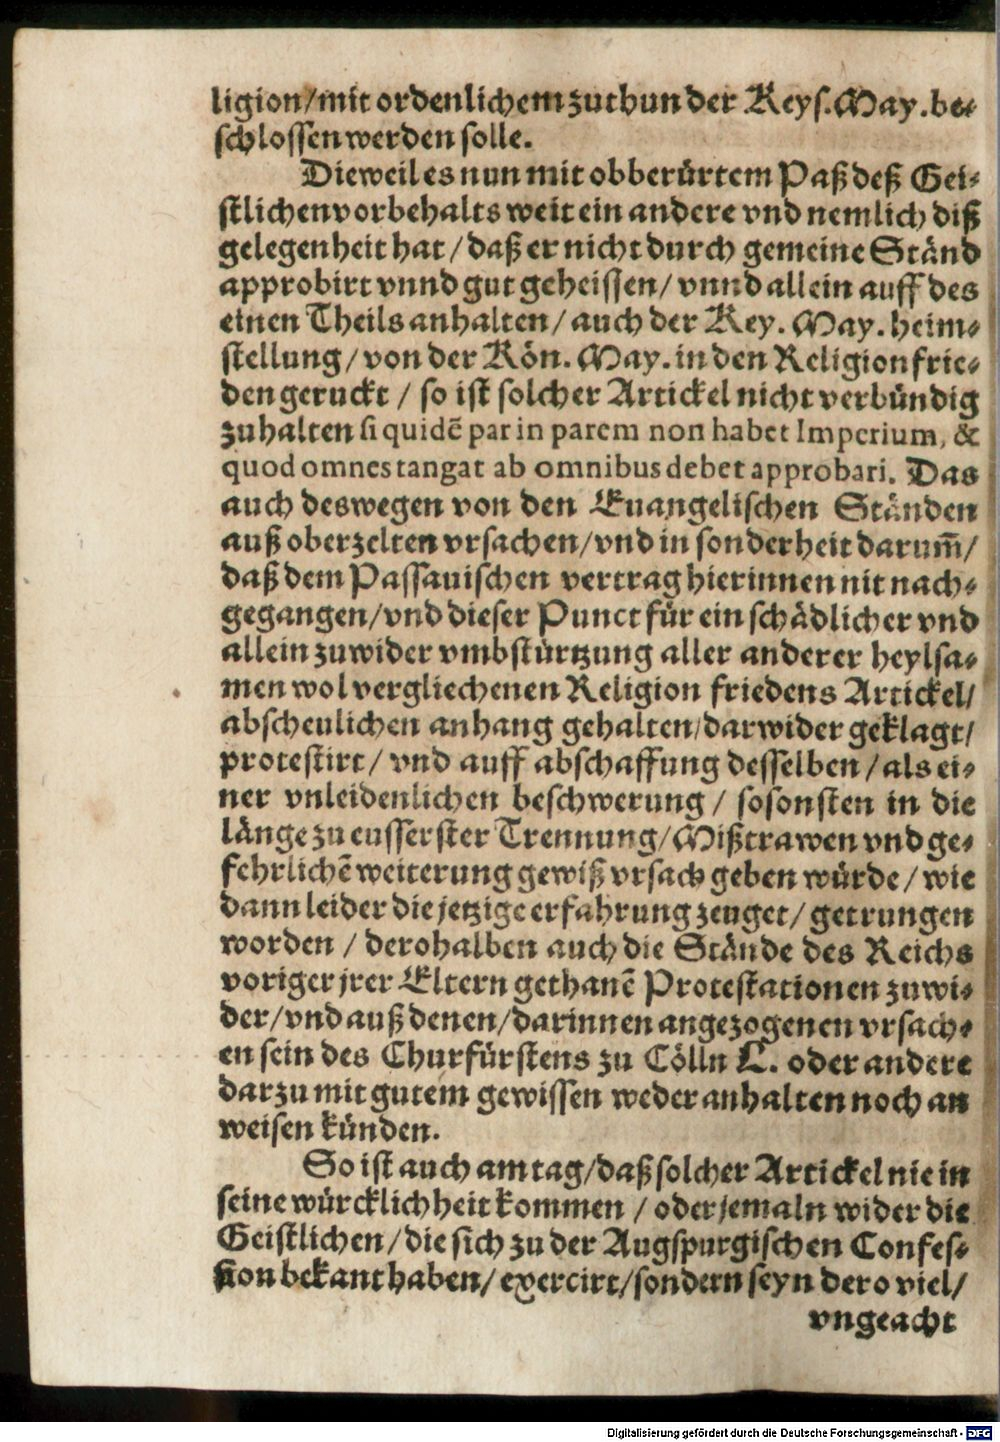 ligion/mit ordenlichem zuthun der Keys. May. be-
schlossen werden solle.
Dieweil es nun mit obberürtem Paß deß Gei-
stlichen vorbehalts weit ein andere vnd nemlich diß
gelegenheit hat / daß er nicht durch gemeine Ständ
approbirt vnnd gut geheissen/ vnnd allein auff des
einen Theils anhalten/ auch der Key. May. heim-
stellung/ von der Kön. May. in den Religion frie-
den geruckt / so ist solcher Artickel nicht verbündig
zu halten si quidē par in parem non habet Imperium, &
quod omnes tangat ab omnibus debet approbari. Das
auch deswegen von den Euangelischen Ständen
auß oberzelten vrsachen/vnd in sonderheit darum̄/
daß dem Passauischen vertrag hierinnen nit nach-
gegangen/vnd dieser Punct für ein schädlicher vnd
allein zuwider vmbstürtzung aller anderer heylsa-
men wol vergliechenen Religion friedens Artickel/
abscheulichen anhang gehalten/darwider geklagt/
protestirt/ vnd auff abschaffung desselben / als ei-
ner vnleidenlichen beschwerung / so sonsten in die
länge zu eusserster Trennung/Mißtrawen vnd ge-
fehrlichē weiterung gewiß vrsach geben würde/ wie
dann leider die jetzige erfahrung zeuget/ getrungen
worden / derohalben auch die Stände des Reichs
voriger jrer Eltern gethanē Protestationen zuwi-
der/vnd auß denen/darinnen angezogenen vrsach-
en sein des Churfürstens zu Cölln L. oder andere
darzu mit gutem gewissen weder anhalten noch an
weisen künden.
So ist auch am tag/daß solcher Artickel nie in
seine würcklichheit kommen / oder jemaln wider die
Geistlichen/die sich zu der Augspurgischen Confes-
sion bekant haben/ exercirt/sondern seyn dero viel/
vngeacht
Digitalisierung gefördert durch die Deutsche Forschungsgemeinschaft - DFG